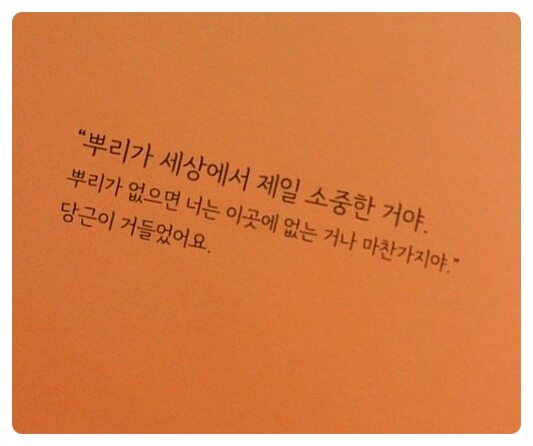 “뿌리가 세상에서 제일 소중한 거야.
뿌리가 없으면 너는 이곳에 없는 거나 마찬가지야.”
당근이 거들었어요.